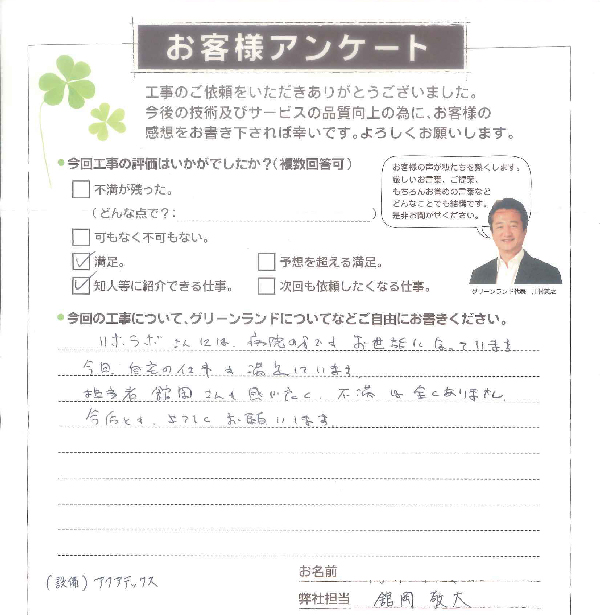 お客様アンケート
工事のご依頼をいただきありがとうございました。
今後の技術及びサービスの品質向上の為に、お客様の
感想をお書き下されば幸いです。よろしくお願いします。
今回工事の評価はいかがでしたか？（複数回答可）
不満が残った。
（どんな点で？：　）
可もなく不可もない。
満足。
予想を超える満足。
知人等に紹介できる仕事。
次回も依頼したくなる仕事。
お客様の声が私たちを熱くします。
厳しいお言葉、ご提案、
もちろんお誉めの言葉など
どんなことでも結構です。
是非お聞かせください。
グリーンランド代表
今回の工事について、グリーンランドについてなどご自由にお書きください。
リボラボさんには、病院の方でお世話になっています
今回、自宅の仕事も満足しています
担当者 舘岡さんも感が良く、不満は全くありません。
今后とも、よろしくお願いします。
お名前
（設備）アクアデックス
弊社担当 舘岡 敬大